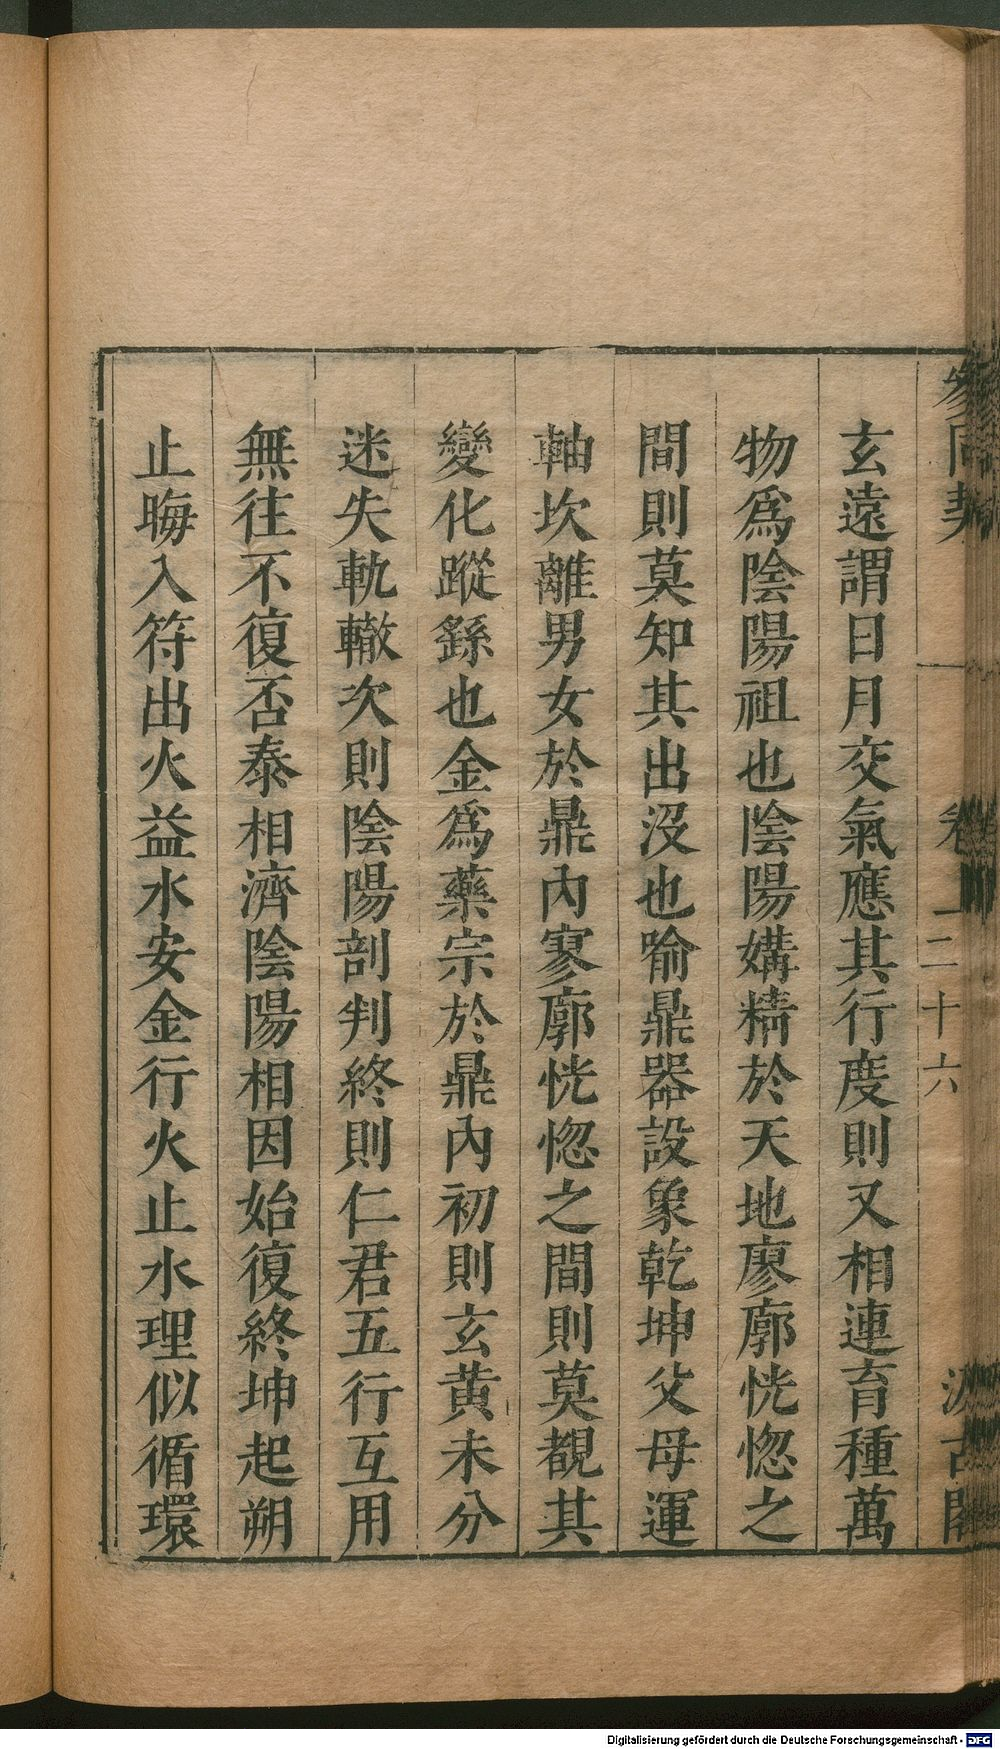 參同契 卷一 二十六 汲古閣
玄遠謂日月交氣應其行度則又相連育種萬
物爲陰陽祖也陰陽媾精於天地廖廓恍惚之
間則莫知其出沒也喻鼎器設象乾坤父母運
軸坎離男女於鼎內寥廓恍惚之間則莫覩其
變化蹤繇也金爲藥宗於鼎內初則玄黃未分
迷失軌轍次則陰陽剖判終則仁君五行互用
無往不復否泰相濟陰陽相因始復終坤起朔
止晦入符出火益水安金行火止水理似循環
Digitalisierung gefördert durch die Deutsche Forschungsgemeinschaft - DFG